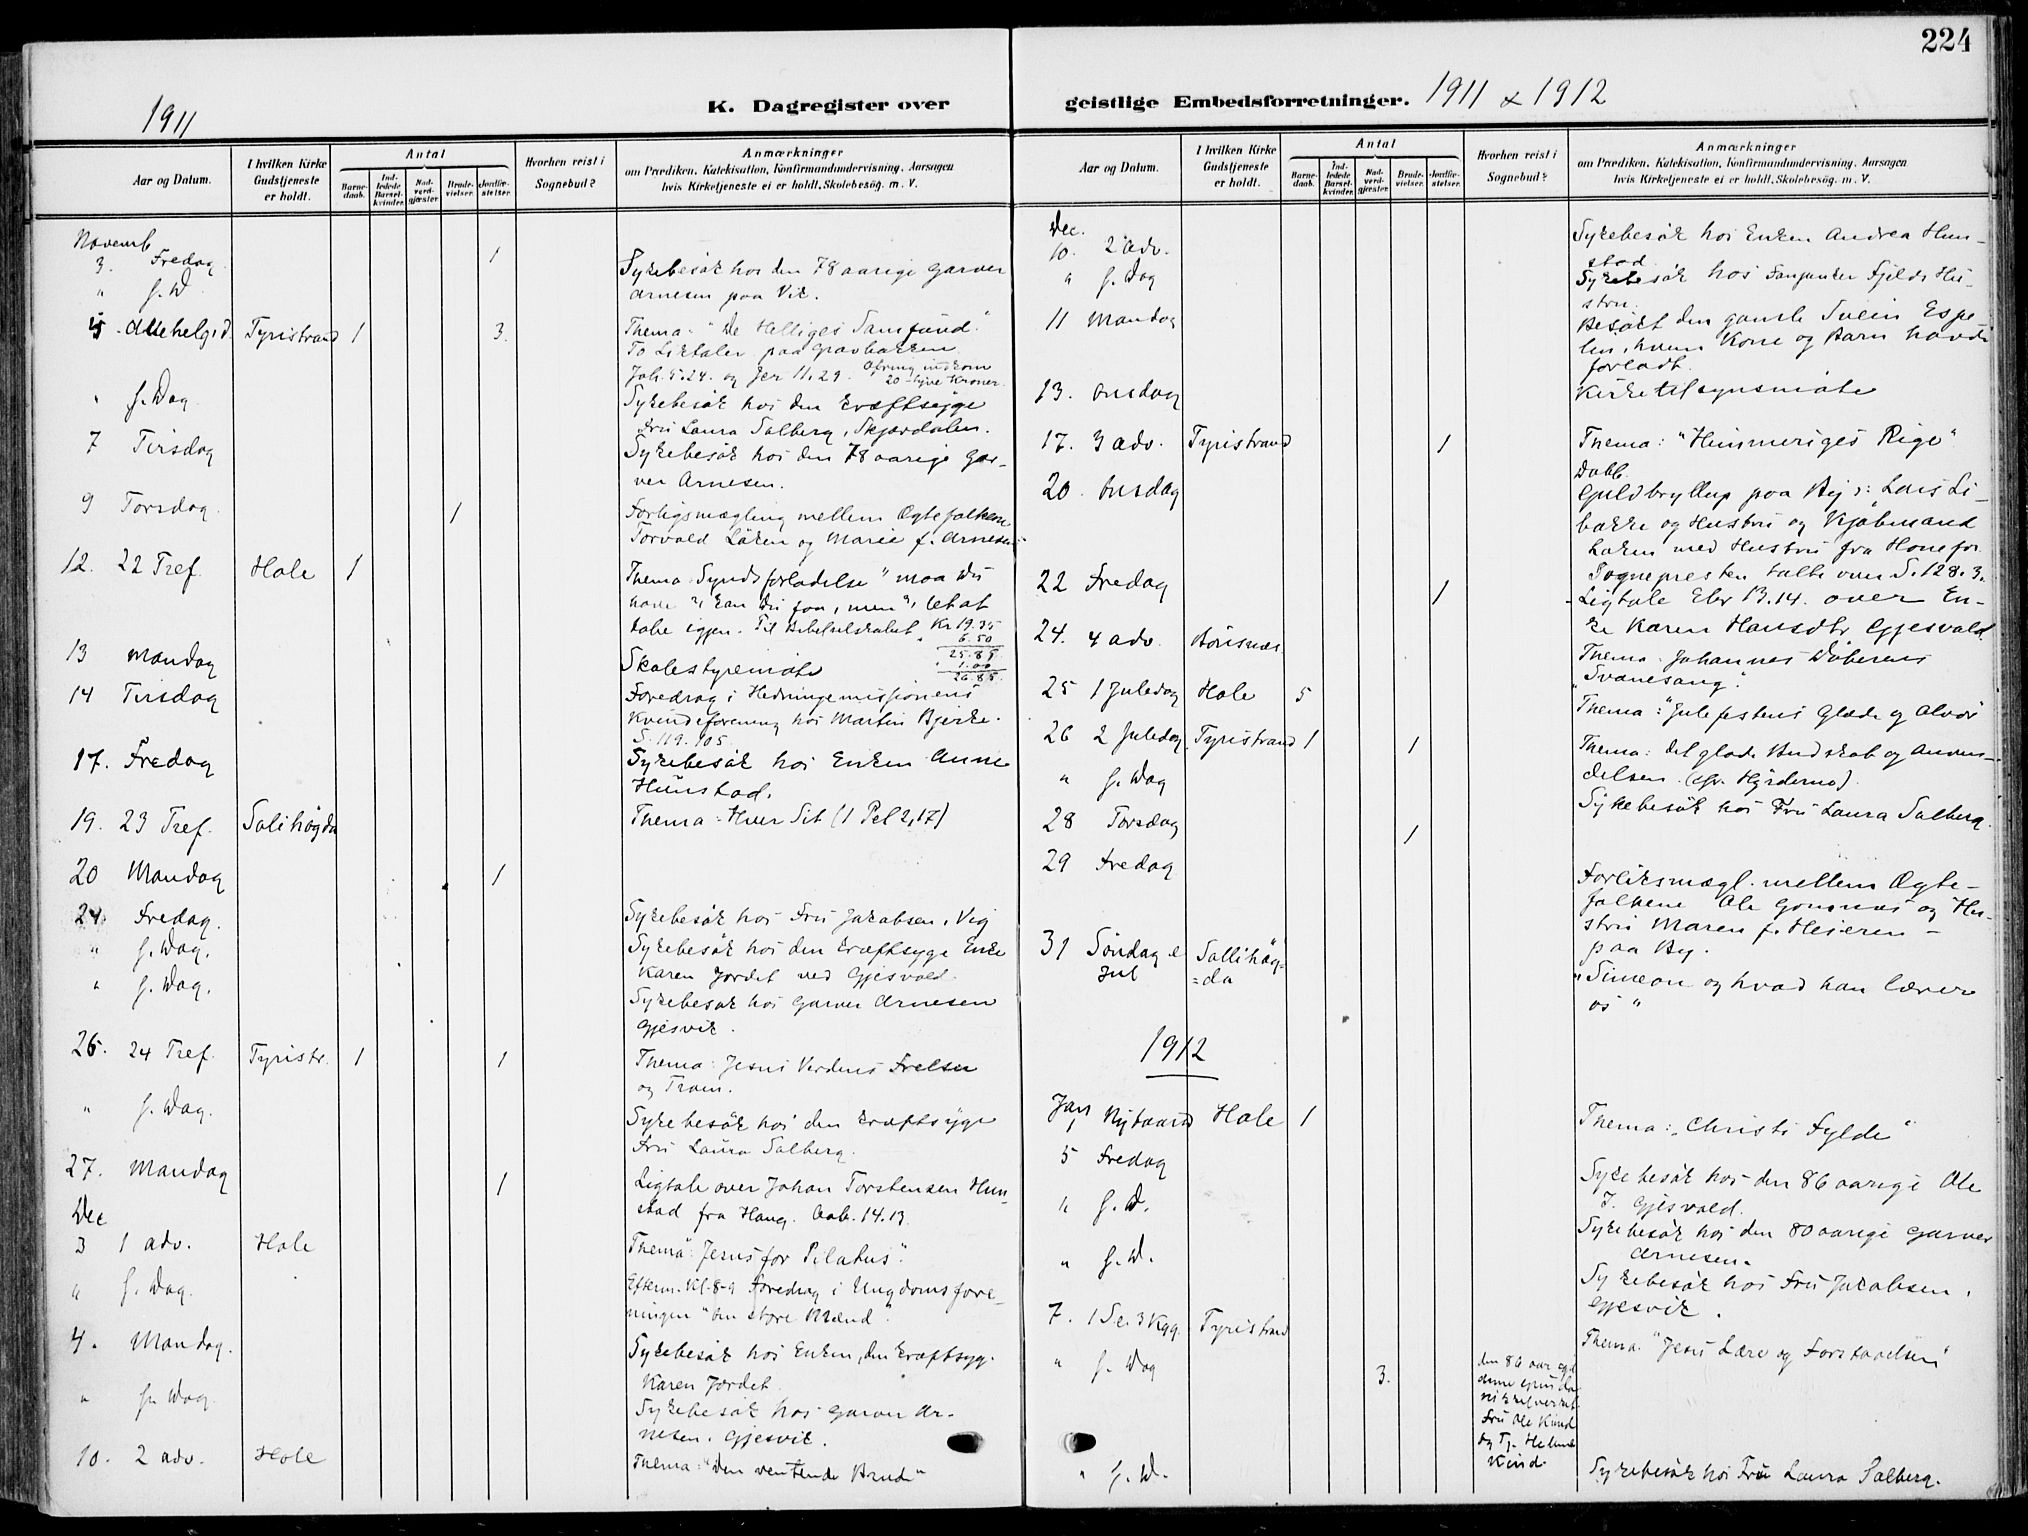 224
1911
K. Dagregister over
Aar og Datum.
I hvilken Kirke Gudstjeneste er holdt.
Antal
Barne-daab.
Ind-ledede Barsel-kvinder.
Nad-verd-gjæster.
Brude-vielser.
Jordfæ-stelser.
Hvorhen reist i Sognebud?
Anmærkninger
om Prædiken, Katekisation, Konfirmandundervisning, Aarsagen
hvis Kirketjeneste ei er holdt, Skolebesøg, m. V.
Novemb
3. Fredag 1
" s. D. Sykebesøk hos den 78 aarige garver
Arnesen paa Vik.
5. Allehelgsd. Tyristrand 1 3. Thema: "De Helliges Samfund."
To Liktaler paa gravbakken
Joh. 5.24. og Jer 11.29. Ofring indkom
20 - tyve Kroner.
" s. Dag. Sykebesøk hos den kræftsyge
Fru Laura Solberg, Skjærdalen.
7 Tirsdag Sykebesøk hos den 78 aarige gar-
ver Arnesen.
9 Torsdag. 1 Forligsmægling mellem Ægtefolkene
Torvald Løken og Marie f. Arnesen
12. 22 Tref. Hole 1 Thema: Syndsforladelse "maa du
have", kan du faa, men",
tabe igjen. Til Bibelselskabet Kr 19.35
" 6.50
25.85
" 1.00
26.85
13 Mandag Skolestyremøte
14 Tirsdag Foredrag i Hedningemissjonens
Kvindeforening hos Martin Bjerke.
S. 119.105.
17. Fredag Sykebesøk hos Enken Anne
Hunstad.
19. 23 Tref. Solihøgda Thema: Hver Sit (1 Pet 2,17)
20 Mandag 1
24 Fredag. Sykebesøk hos Fru Jakobsen, Vig
" s. Dag. Sykebesøk hos den kræftsyge Enke
Karen Jordet ved Gjesvold.
" s. Dag. Sykebesøk hos garver Arnesen
Gjesvik.
26. 24 Tref. Tyristr. 1 1 Thema: Jesus Verdens Frelser
og Trøst.
" s. Dag. Sykebesøk hos den kræftsyge
Fru Laura Solberg.
27. Mandag 1 Ligtale over Johan Torstensen Hun-
stad fra Haug. Aab. 14.13.
Dec
3 1 adv. Hole Thema: "Jesus for Pilatus".
" s. Dag. Efterm. Kl. 8-9 Foredrag i Ungdomsfore-
ningen "den store Brand".
4. Mandag. Sykebesøk hos Enken, den kræftsyg.
Karen Jordet.
" s. Dag Sykebesøk hos garver Ar-
nesen, Gjesvik.
10. 2 adv. Hole Thema: "Den ventende Brud"
geistlige Embedsforretninger. 1911 & 1912
Aar og Datum.
I hvilken Kirke Gudstjeneste er holdt.
Antal
Barne-daab.
Ind-ledede Barsel-kvinder.
Nad-verd-gjæster.
Brude-vielser.
Jordfæ-stelser.
Hvorhen reist i Sognebud?
Anmærkninger
om Prædiken, Katekisation, Konfirmandundervisning, Aarsagen
hvis Kirketjeneste ei er holdt, Skolebesøg, m. V.
Dec.
10. 2 adv. Sykebesøk hos Enken Andrea Hun-
stad.
" s. Dag Sykebesøk hos Fanjunker Fjelds Hu-
stru.
11 Mandag Besøkt den gamle Svein Espe-
lien, hvem Kone og Barn havde
forladt.
13. Onsdag Kirketilsynsmøte
17. 3 adv. Tyristrand 1 Thema: "Himmeriges Rige"
20. Onsdag Dobb.
Guldbryllup paa By: Lars Li-
bakke og Hustru og Kjøbmand
Løken med Hustru fra Hønefos.
Sognepresten talte over S. 128.3.
22 Fredag 1 Ligtale Ebr 13.14. over En-
ke Karen Hansdtr Gjesvold
24. 4 adv. Bønsnes. Thema: Johannes Døberens
"Svanesang".
25 1 Juledag Hole 5 Thema: "Julefestens Glæde og Alvor
26 2 Juledag Tyristrand 1 1 Thema: Det glade Budskab og Anven-
delsen. (cfr. Hyrderne).
" s. Dag Sykebesøk hos Fru Laura Solberg.
28 Torsdag 1
29 Fredag Forliksmægl. mellem Ægte-
folkene Ole Gomnæs og Hu-
stru Maren f. Heieren -
paa By.
31 Søndag e. Jul Sollihøg-
=da "Simeon og hvad han lærer
os"
1912
Jan
1 Nytaarsd Hole 1 Thema: "Christi Fylde"
5 Fredag Sykebesøk hos den 86 aarige Ole
J. Gjesvold.
" s. D. Sykebesøk hos den 80 aarige garver
Arnesen.
" s. D. Sykebesøk hos Fru Jakobsen,
Gjesvik.
7. 1 S. e. 3 Kgg. Tyristrand Thema: "Jesu Lære og Forstaaelsen"
" s. Dag 3. den 86 aar gl.
Fru Ole Kind
og Tj. Helene
Kind.
" s. D. Sykebesøk hos Fru Laura Solberg.